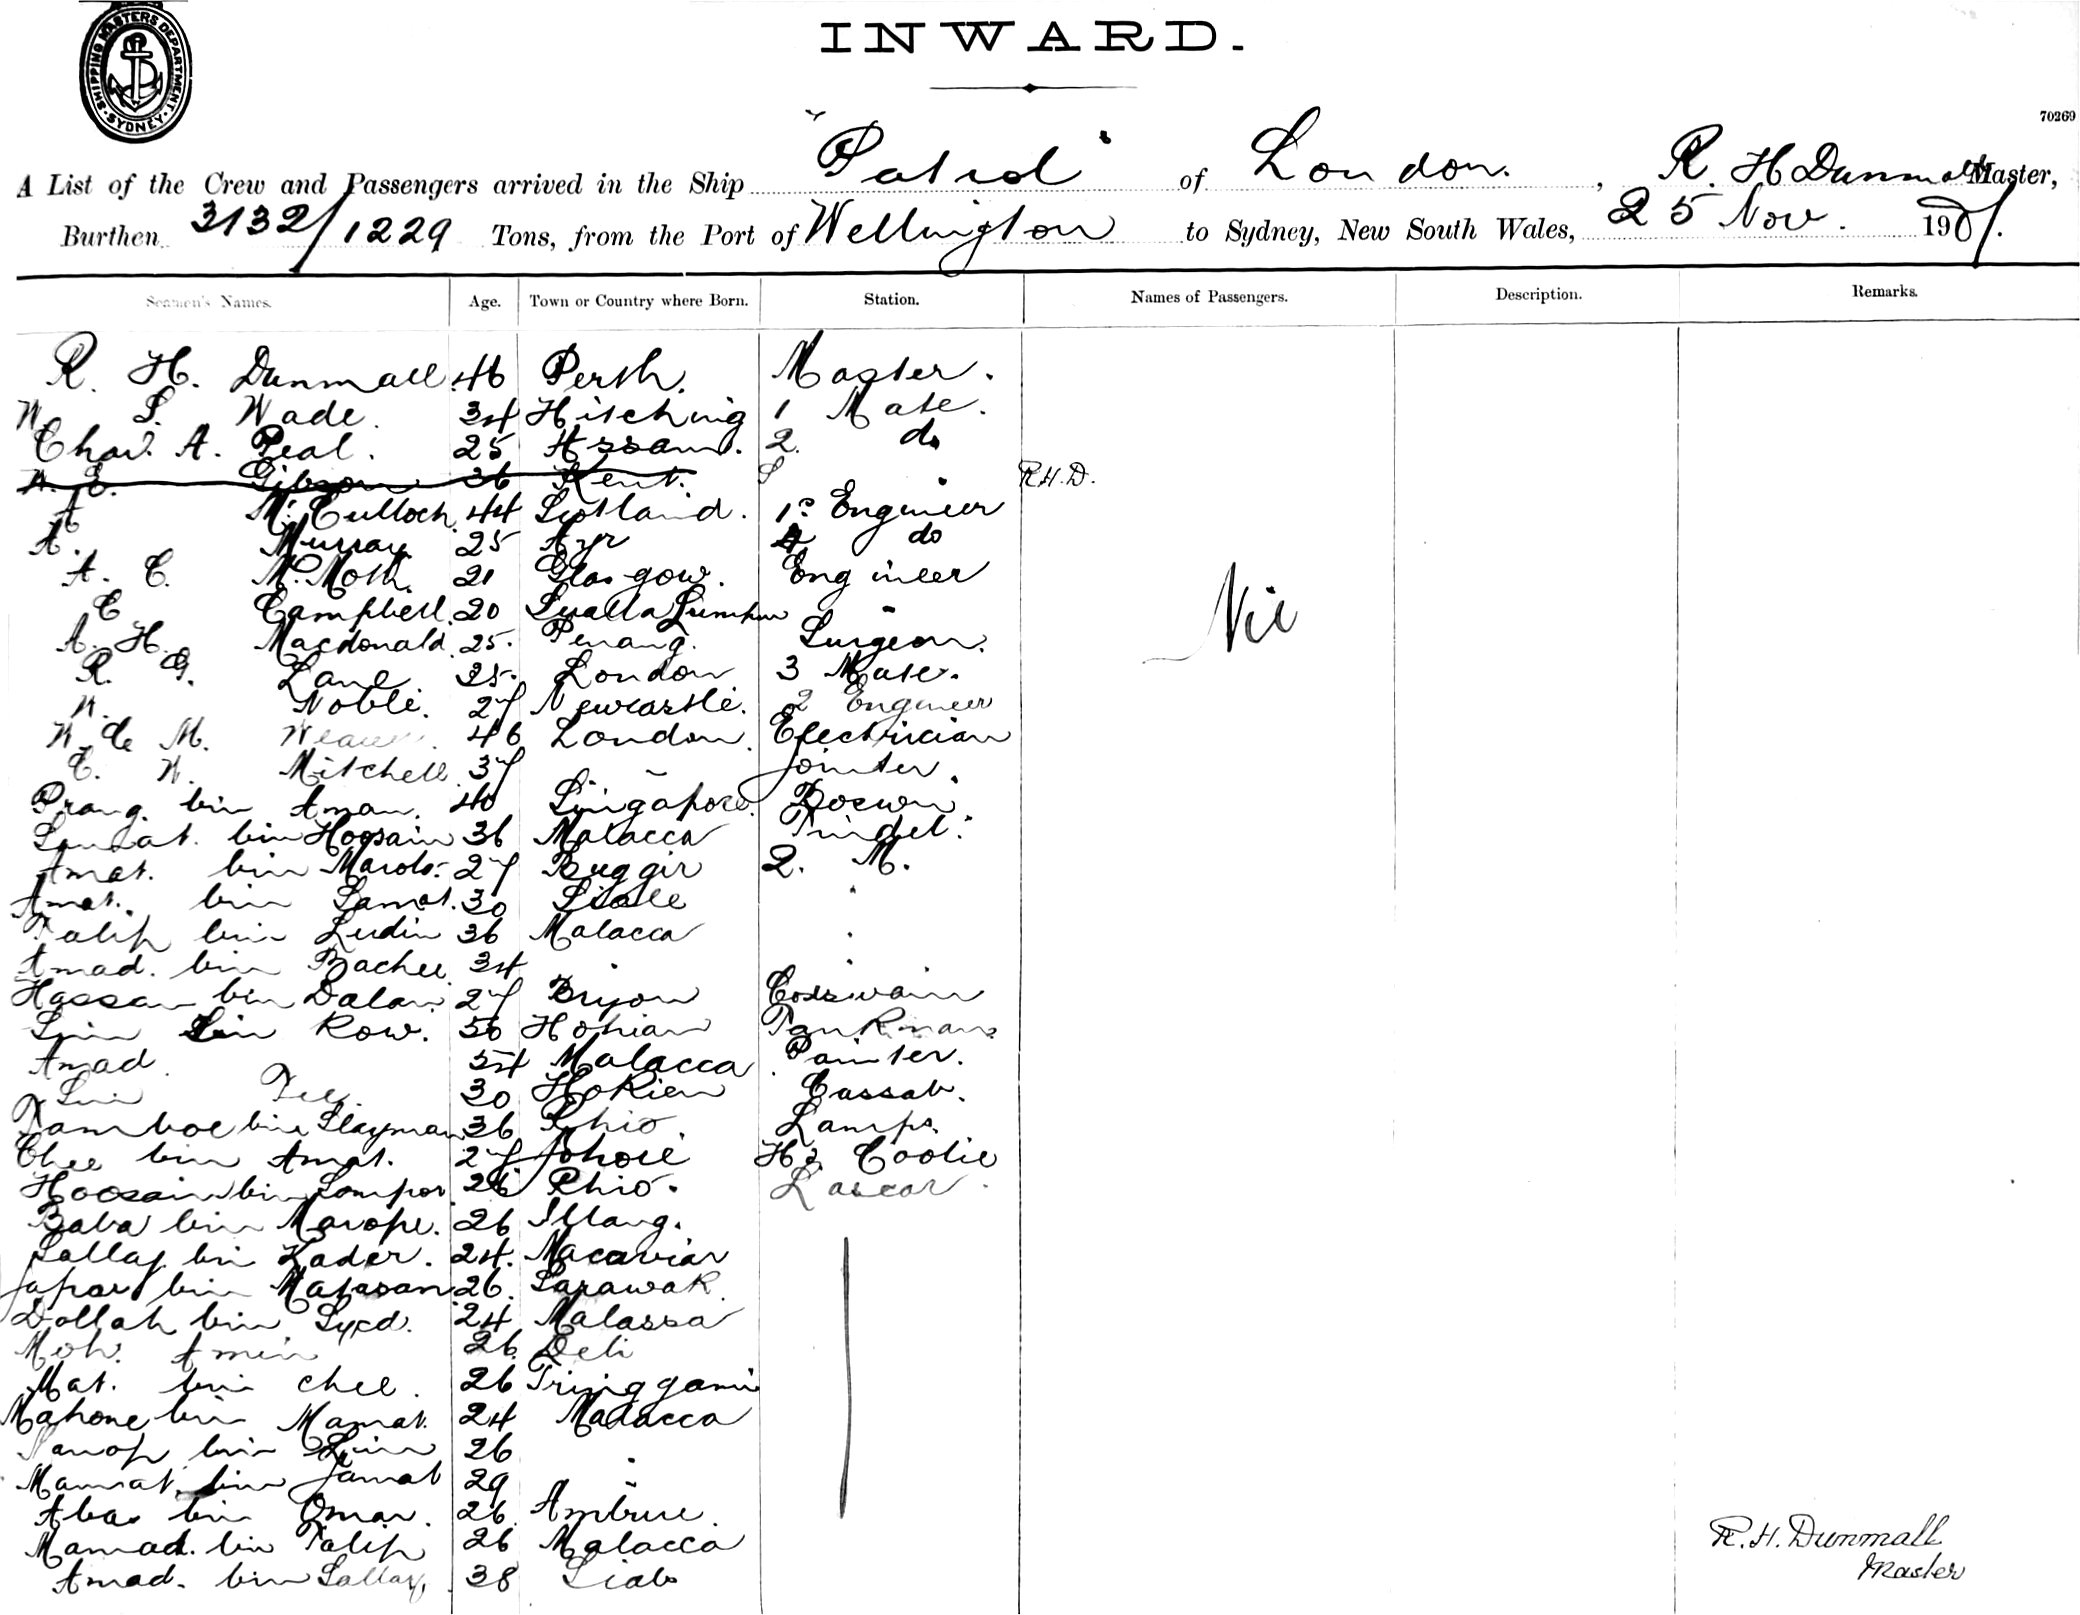 SHIPPING MASTERS DEPARTMENT
SYDNEY
INWARD.
70269
A List of the Crew and Passengers arrived in the Ship "Patrol" of London, R. H Dunmall Master,
Burthen 3132/1229 Tons, from the Port of Wellington to Sydney, New South Wales, 25 Nov. 1901.
Seamen's Names. Age. Town or Country where Born. Station. Names of Passengers. Description. Remarks.
R. H. Dunmall 46 Perth. Master.
W. S. Wade. 34 Hitching 1 Mate.
Chas. A. Peal. 25 Assam. 2. do
W. E. Gibson 36 Kent. R.H.D.
A McCulloch 44 Scotland. 1st Engineer
A. Murray 25 Ayr 4 do
A. C. 21 Glasgow. Engineer
C Campbell 20 Lualla Lumpur "
A. H. Macdonald 25. Penang. Surgeon.
R. G. Lane 25. London 3 Mate.
W. Noble. 27 Newcastle. 2 Engineer
W de M. 46 London. Electrician
C. W. Mitchell 37 " Jointer.
Prang. bin Aman. 40 Singapore. Boswn
bin Hoosain 36 Malacca Tindel.
Amat. bin 27 Buggir 2. M.
Amat. bin Samat. 30 "
Talip bin Ludin 36 Malacca "
Amad. bin Bachee 34 " "
Hassan bin Dalan. 27 Coxswain
Lim Row. 50 Hohian Tankman
Amad 54 Malacca Painter.
Lim Tee. 30 Hokien Cassab.
Tamboe bin Slayman 36 Rhio. Lamps.
Chee bin Amat. 27 Johore Hd Coolie
Hoosain bin Sompor 26 Rhio. Lascar.
Baba bin Marope. 26 Illang.
Sallay bin Kader. 24. Macaviar
Japar bin Matasan 26. Sarawak.
Dollah bin Syed. 24 Malassa
Moh. Amin 26. Deli
Mat. bin chee. 26 Tringganie
Mahone bin Mamat. 24 Malacca
bin 26 "
Mamat. bin Jamat 29 "
Abas bin Omar. 26.
Mamad. bin Talip 26 Malacca
Amad. bin Sallay, 38 Siab
Nil
R. H. Dunmall
Master